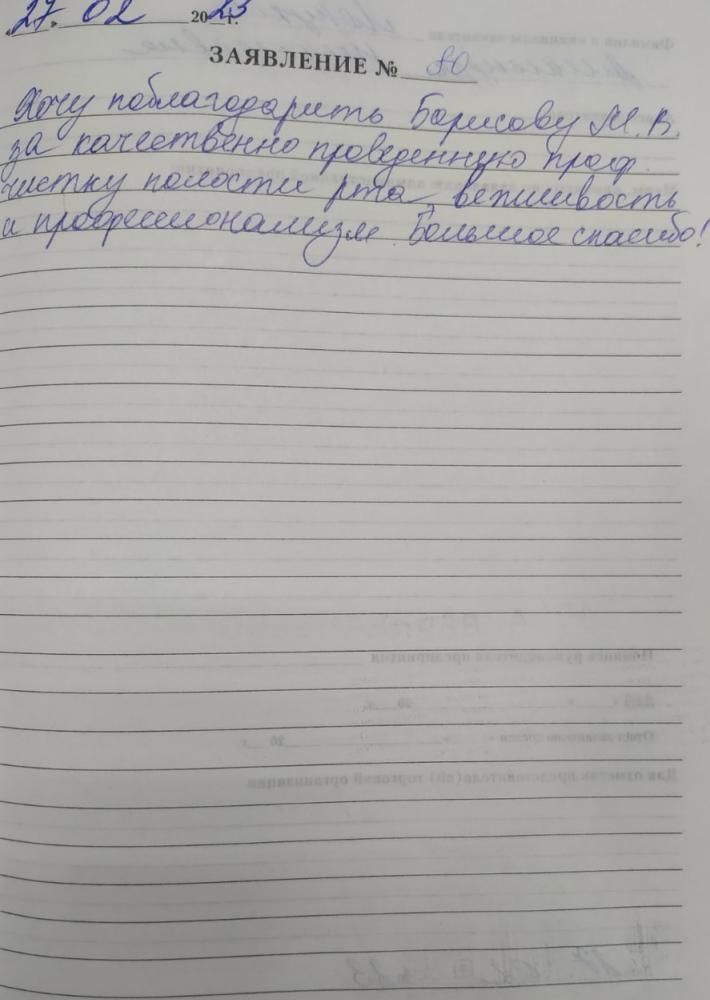 "27" 02 2023 г.
ЗАЯВЛЕНИЕ № 80
Хочу поблагодарить Борисову М.В.
за качественно проведенную проф.
чистку полости рта, вежливость
и профессионализм. Большое спасибо!